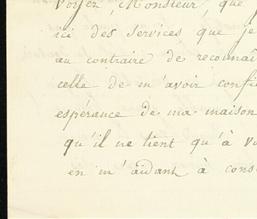 Voyez, Monsieur, que j
ici des services que je
au contraire de reconnai
celle de m'avoir confi
espérance de ma maison
qu'il ne tient qu'à vo
en m'aidant à cons